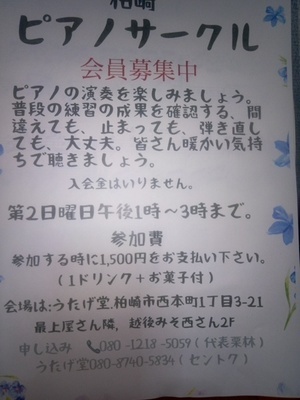 柏崎
ピアノサークル
会員募集中
ピアノの演奏を楽しみましょう。
普段の練習の成果を確認する、間
違えても、止まっても、弾き直し
ても、大丈夫。皆さん暖かい気持
ちで聴きましょう。
入会金はいりません。
第2日曜日午後1時～3時まで。
参加費
参加する時に1,500円をお支払い下さい。
(1ドリンク+お菓子付)
会場は:うたげ堂.柏崎市西本町1丁目3-21
最上屋さん隣，越後みそ西さん2F
申し込み 📞080-1218-5059(代表栗林)
うたげ堂080-8740-5834(セントウ)